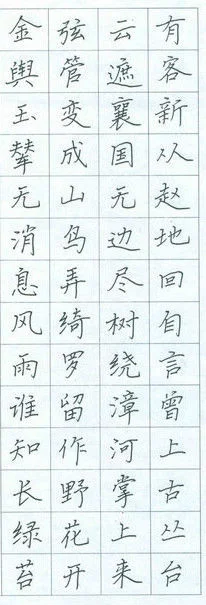 有客新从赵地回自言曾上古丛台
云遮襄国无边尽树绕漳河掌上来
弦管变成山鸟弄绮罗留作野花开
金舆玉辇无消息风雨谁知长绿苔